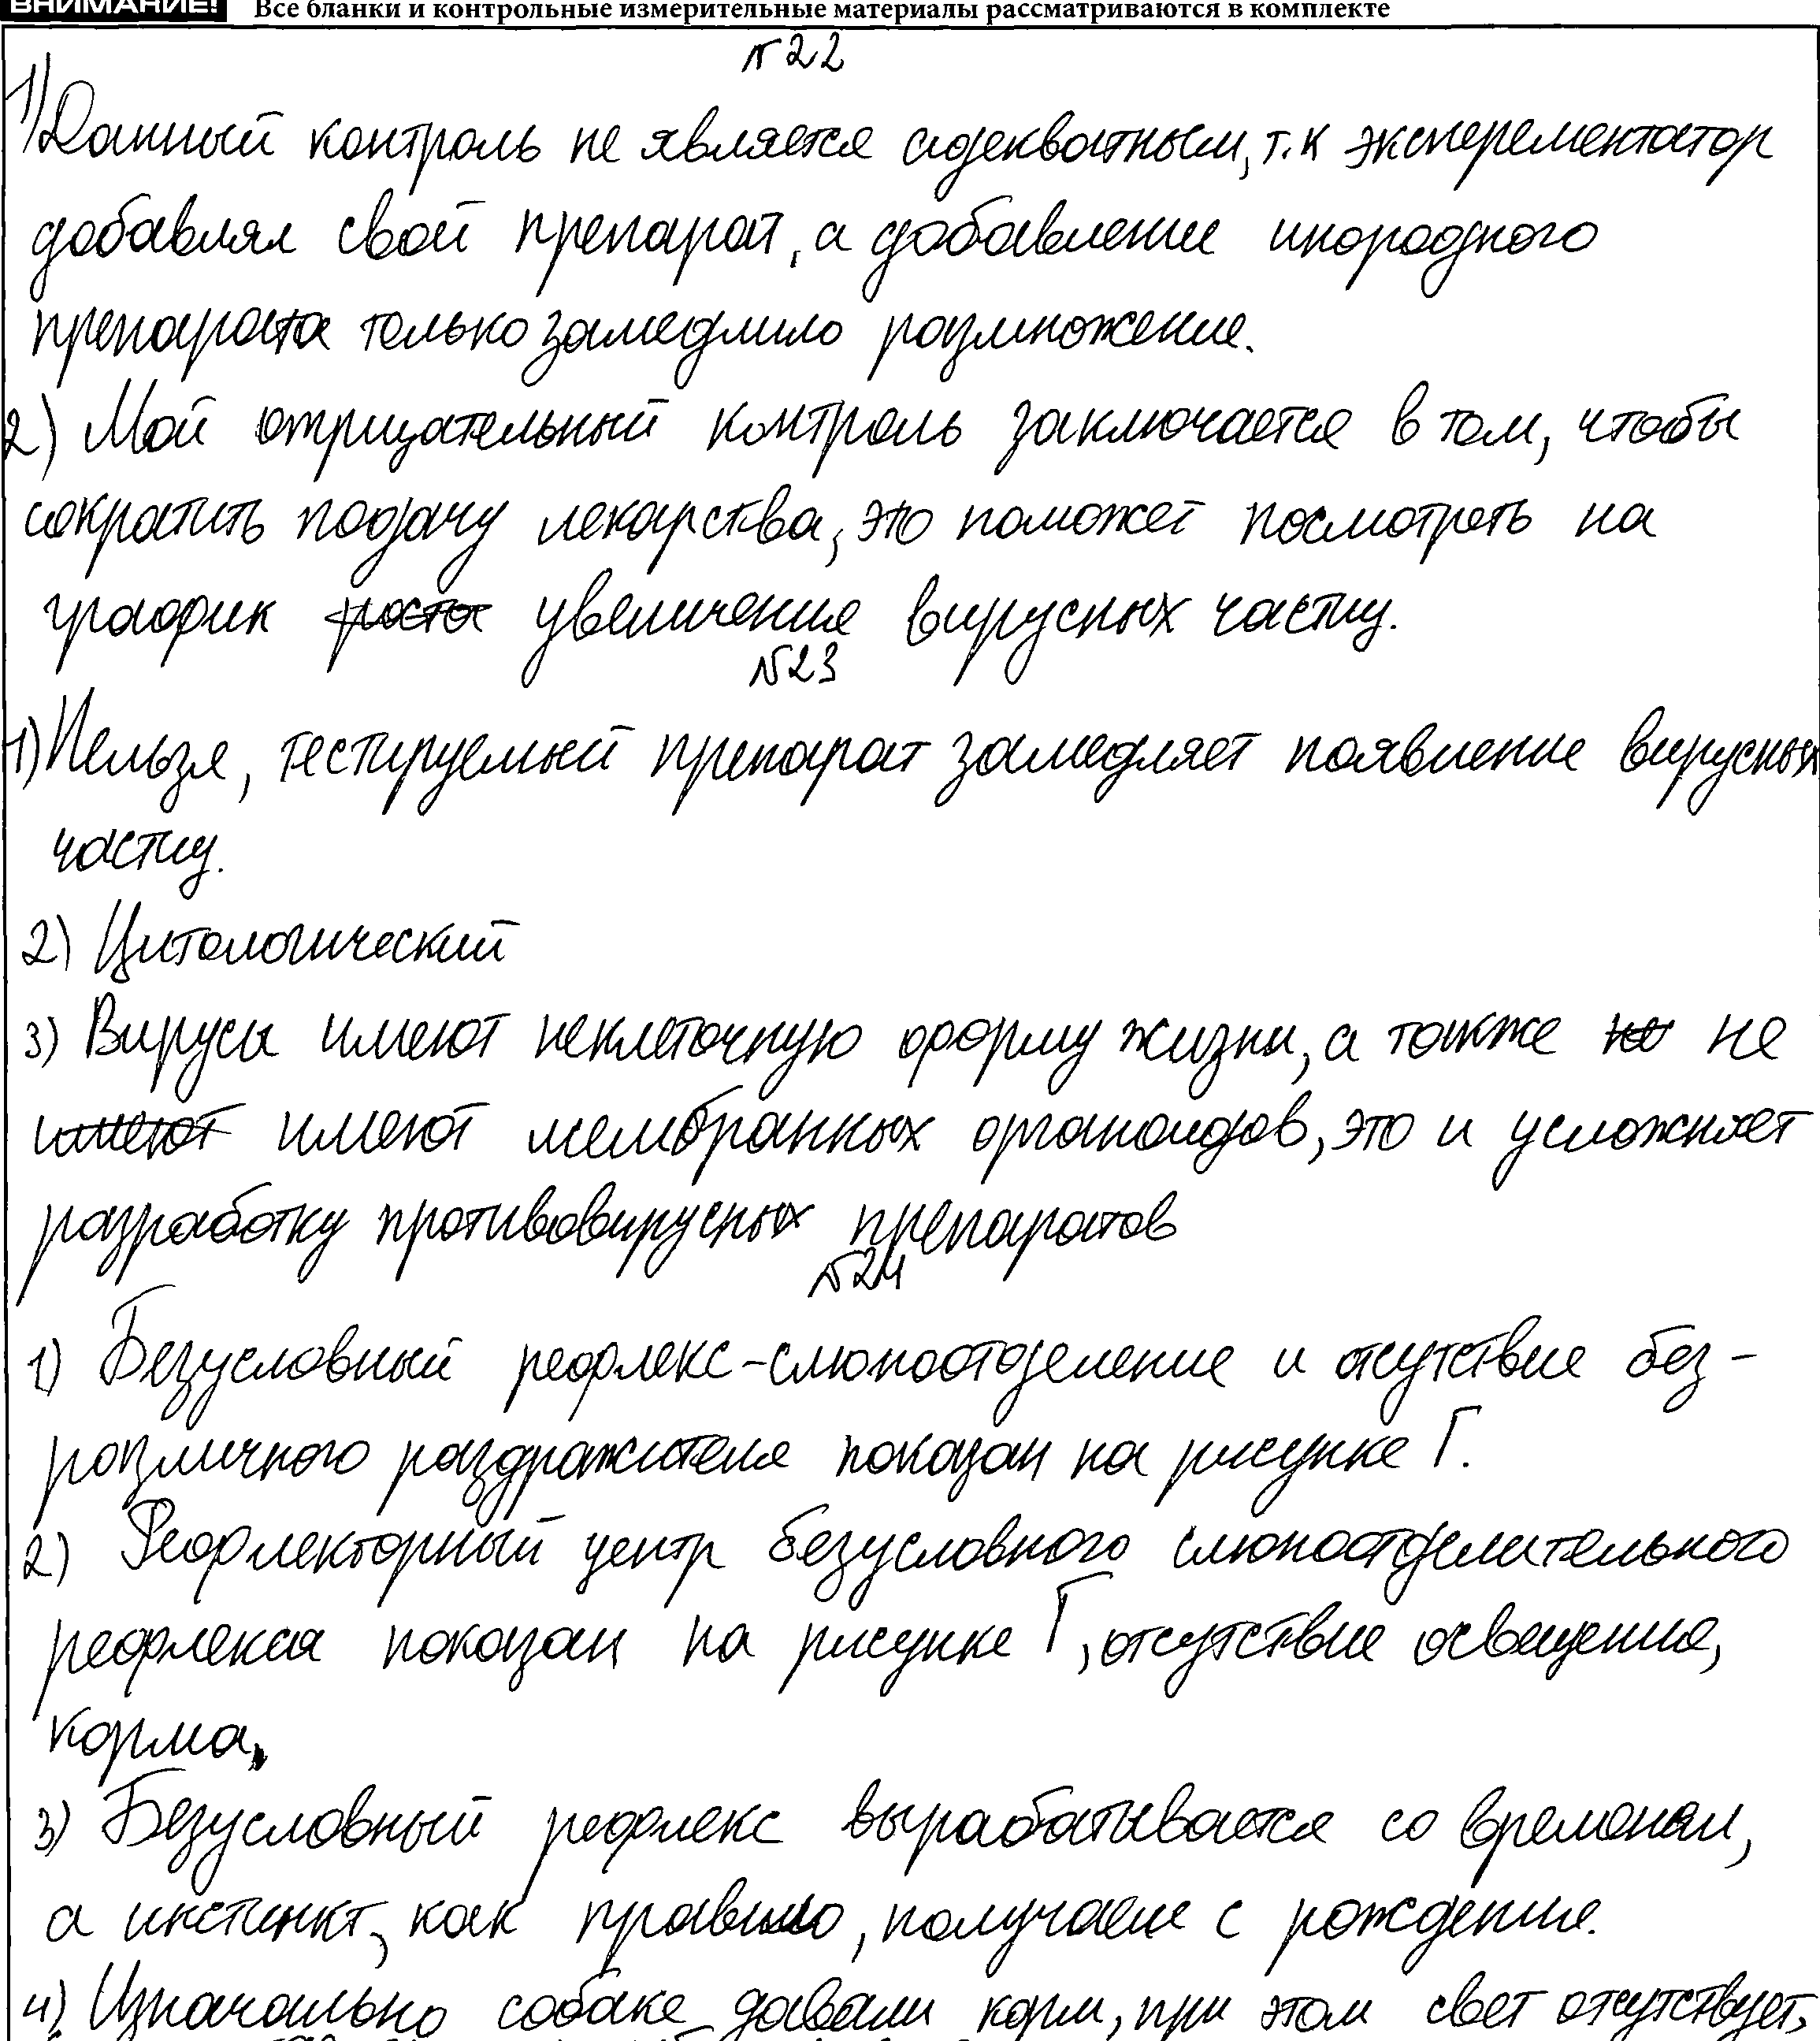 ВНИМАНИЕ! Все бланки и контрольные измерительные материалы рассматриваются в комплекте
№22
1) Данный контроль не является адекватным, т.к эксперементатор
добавлял свой препарат, а добавление инородного
препарата только замедлило размножение.
2) Мой отрицательный контроль заключается в том, чтобы
сократить подачу лекарства, это поможет посмотреть на
график роста увеличения вирусных частиц.
№23
1) Нельзя, тестируемый препарат замедляет появление вирусных
частиц.
2) Цитологический
3) Вирусы имеют неклеточную форму жизни, а также не
имеют имеют мембранных органоидов, это и усложняет
разработку противовирусных препаратов
№24
1) Безусловный рефлекс-слюноотделение и отсутствие без-
различного раздражителя показан на рисунке Г.
2) Рефлекторный центр безусловного слюноотделительного
рефлекса показан на рисунке Г, отсутствие освещения,
корма.
3) Безусловный рефлекс вырабатывается со временем,
а инстинкт, как правило, получаем с рождение.
4) Изначально собаке давали корм, при этом свет отсутствует,